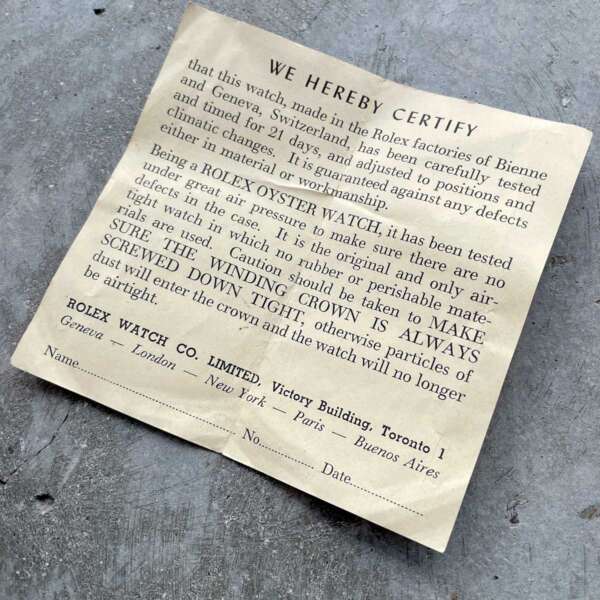 WE HEREBY CERTIFY
that this watch, made in the Rolex factories of Bienne
and Geneva, Switzerland, has been carefully tested
and timed for 21 days, and adjusted to positions and
climatic changes. It is guaranteed against any defects
either in material or workmanship.
Being a ROLEX OYSTER WATCH, it has been tested
under great air pressure to make sure there are no
defects in the case. It is the original and only air-
tight watch in which no rubber or perishable mate-
rials are used. Caution should be taken to MAKE
SURE THE WINDING CROWN IS ALWAYS
SCREWED DOWN TIGHT, otherwise particles of
dust will enter the crown and the watch will no longer
be airtight.
ROLEX WATCH CO. LIMITED, Victory Building, Toronto 1
Geneva — London — New York — Paris — Buenos Aires
Name.............................................. No............... Date....................